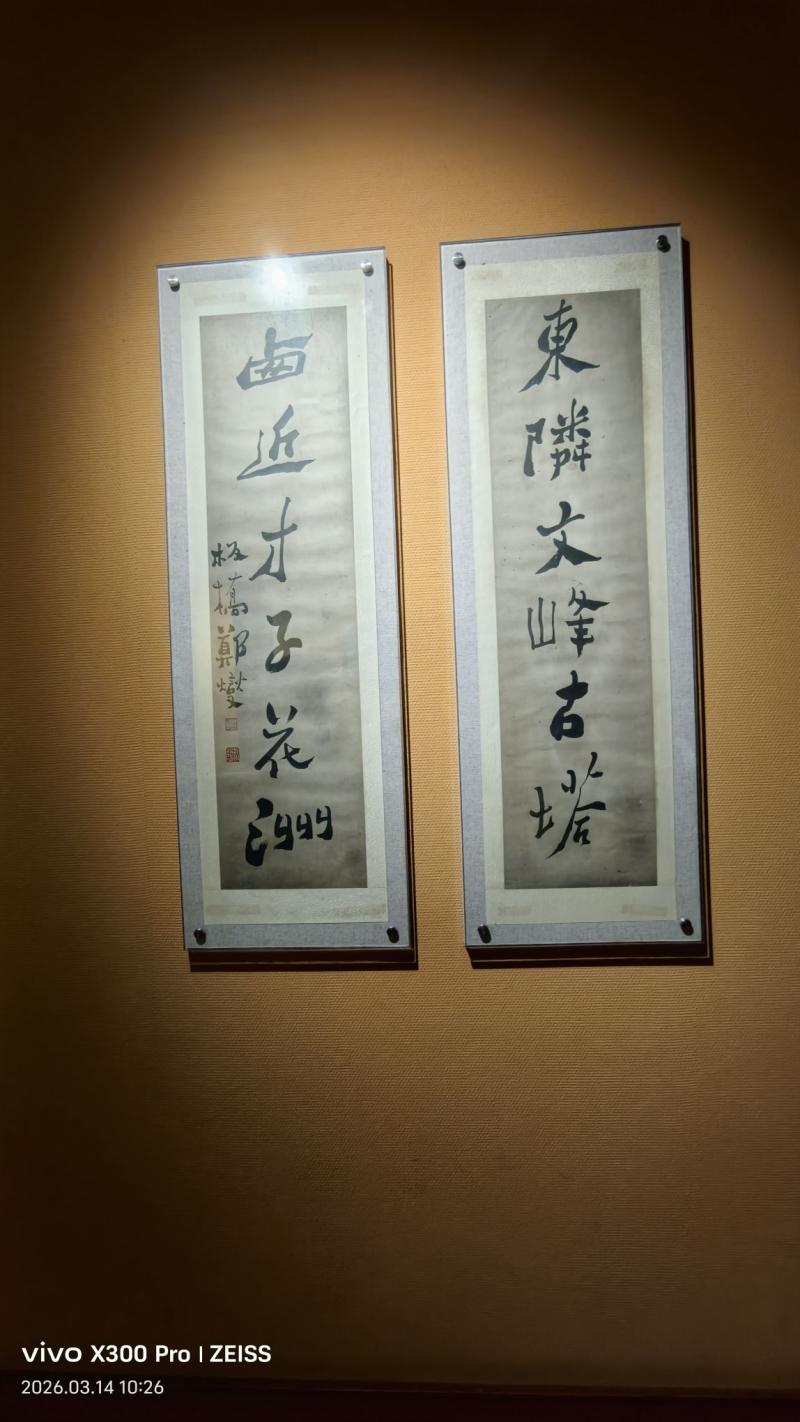 東隣文峰古塔
西近才子花洲
板橋鄭燮
vivo X300 Pro | ZEISS
2026.03.14 10:26